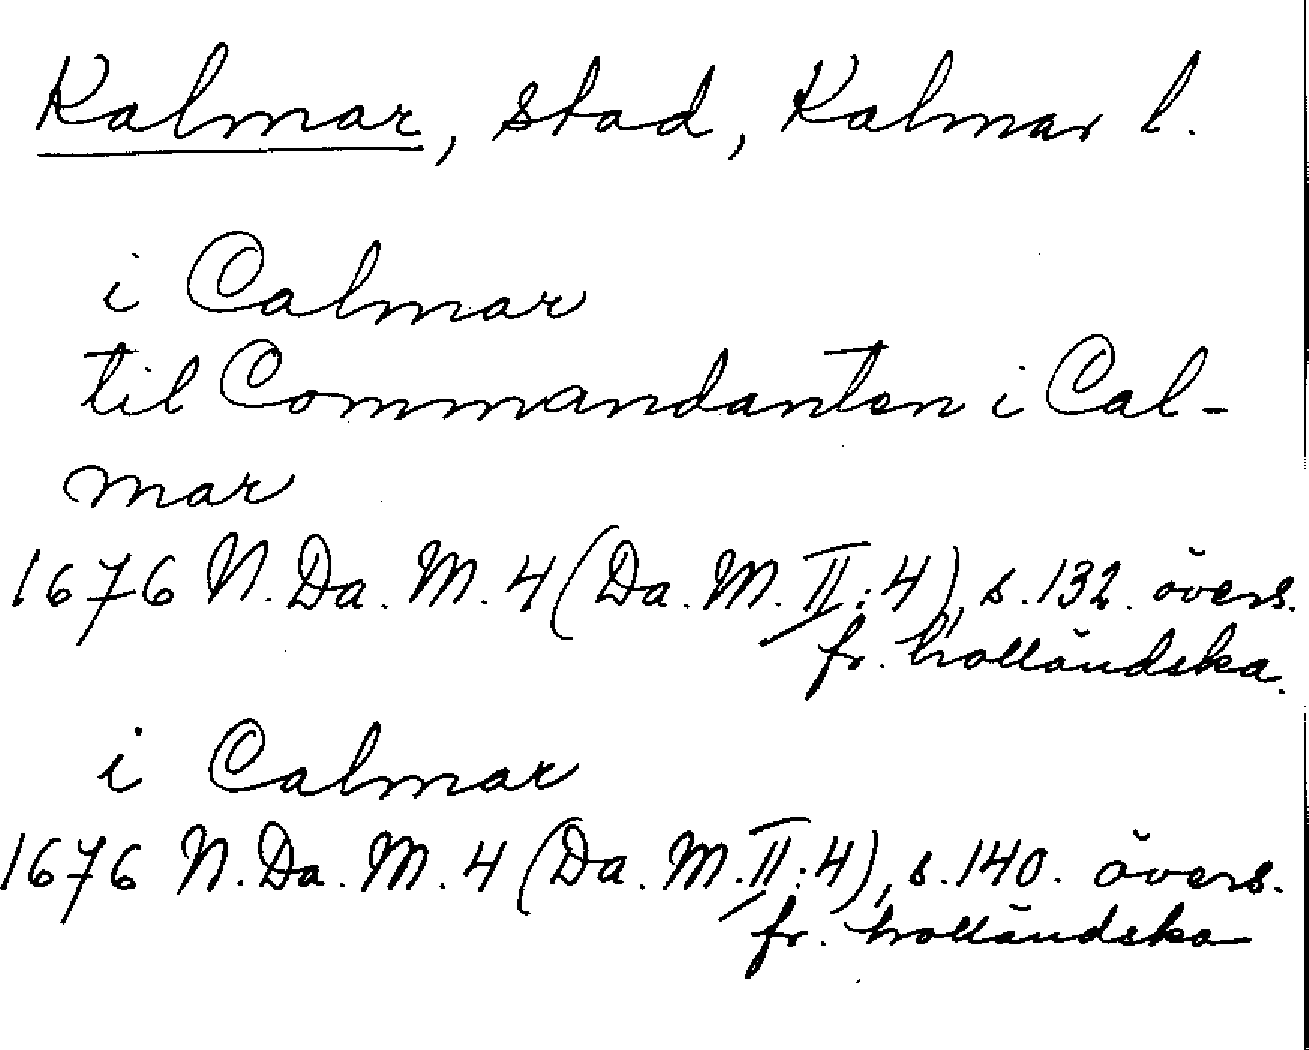 Kalmar, stad, Kalmar l.
i Calmar
til Commandanten i Cal-
mar
1676 N. Da. M. 4 (Da. M. II:4), s. 132. övers.
fr. holländska.
i Calmar
1676 N. Da. M. 4 (Da. M. II:4), s. 140. övers.
fr. holländska